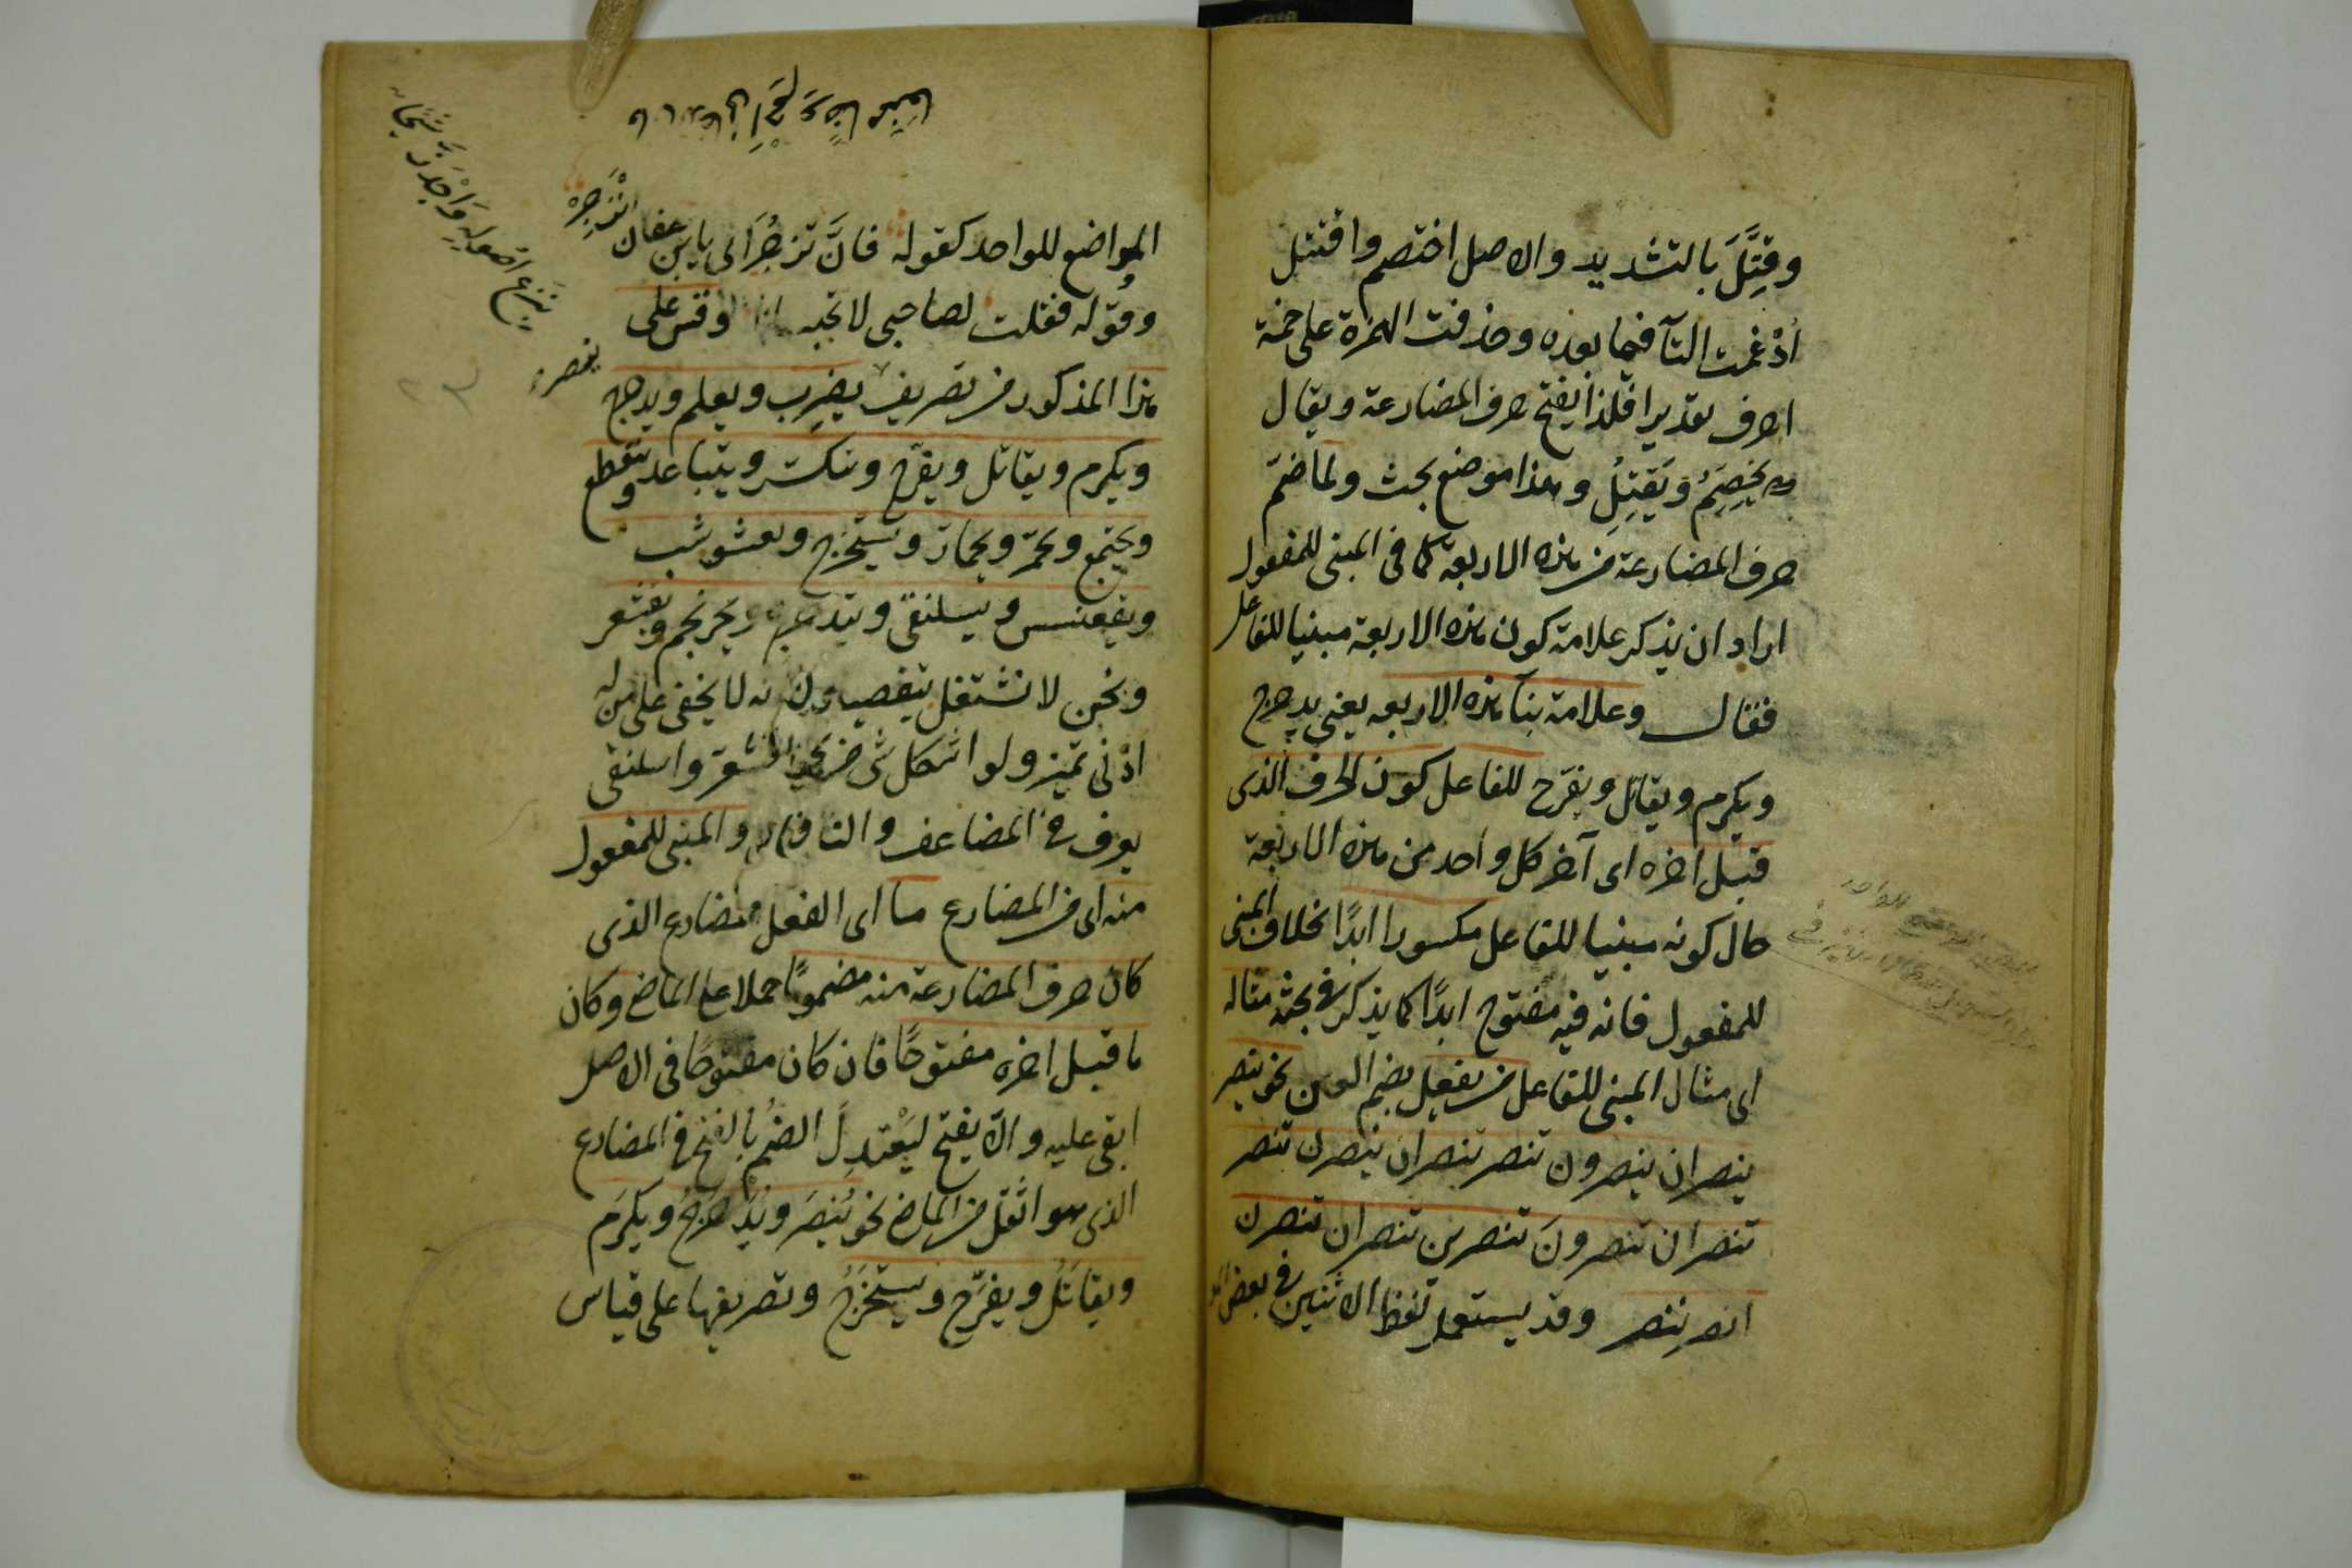 وقِتَّلَ بالتشديد والاصل اختصم واقتتل
ادْغمت التآ فيما بعده وحذفت الهمزة على خمسة
احرف تقديرا فلذا يفتح حرف المضارعة ويقال
يَخِصِّمُ ويَقِتِّلُ وهذا موضع بحث ولما ضمّ
حرف المضارعة من هذه الاربعة كما فى المبنى للمفعول
اراد ان يذكر علامة كون هذه الاربعة مبنيا للفاعل
فقال وعلامة بنآ هذه الاربعة يعنى يدحرج
ويكرم ويقاتل ويفرّح للفاعل كون الحرف الذى
قبل اخره اى آخر كل واحد من هذه الاربعة
حال كونه مبنيا للفاعل مكسورا ابدًا بخلاف المبنى
للمفعول فانه فيه مفتوح ابدًا كما يذكر فى بحثه مثاله
اى مثال المبنى للفاعل من يفعل بضم العين نحو ينصر
ينصران ينصرون تنصر تنصران ينصرن تنصر
تنصران تنصرونَ تنصرين تنصران تنصرن
انصر ننصر وقد يستعمل لفظ الاثنين فى بعض
المواضع للواحد كقوله فانَّ تزجُرَانى يابن عفان انْزَجِرْ
وقوله فقلت لصاحبى لا تحبسانا وقس على
هذا المذكور من تصريف يضرِب ويعلم ويدحرج
ويكرم ويقاتل ويفرّح وينكسر ويتباعد ويتقطع
ويجتمع ويحمرّ ويحمارّ ويستخرج ويعشوشب
ويقعنسس ويسلنقى ويتدحرج ويحرنجم ويقشعر
ونحن لا نشتغل بتفصيله لانه لا يخفى على من له
ادْنى تميز ولو اشكل شئ من نحو اقشعرّ واسلنقى
يعرف فى المضاعف والناقص والمبنى للمفعول
منه اى من المضارع ما اى الفعل المضارع الذى
كان حرف المضارعة منه مضمومًا حملا على الماضى وكان
ما قبل اخره مفتوحًا فان كان مفتوحًا فى الاصل
ابقى عليه والّا يفتح ليَعْتدِلَ الضمُّ بالفتح فى المضارع
الذى هو اثقل من الماضى نحو يُنصَر ويُدَحْرَجُ ويكرَم
ويقاتَلُ ويفرَّح ويستخرَجُ وتصريفها على قياس
ينصر
بنزع اصوله واجدز شيحا